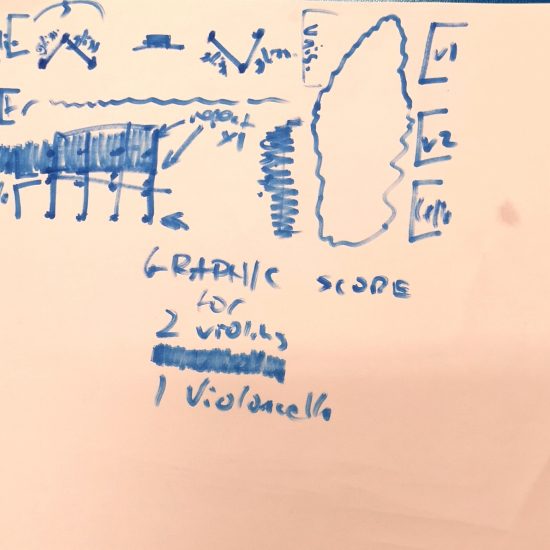 Unis.
V1
repeat
x1
V2
Cello
GRAPHIC SCORE
for
2 violins
1 Violoncello